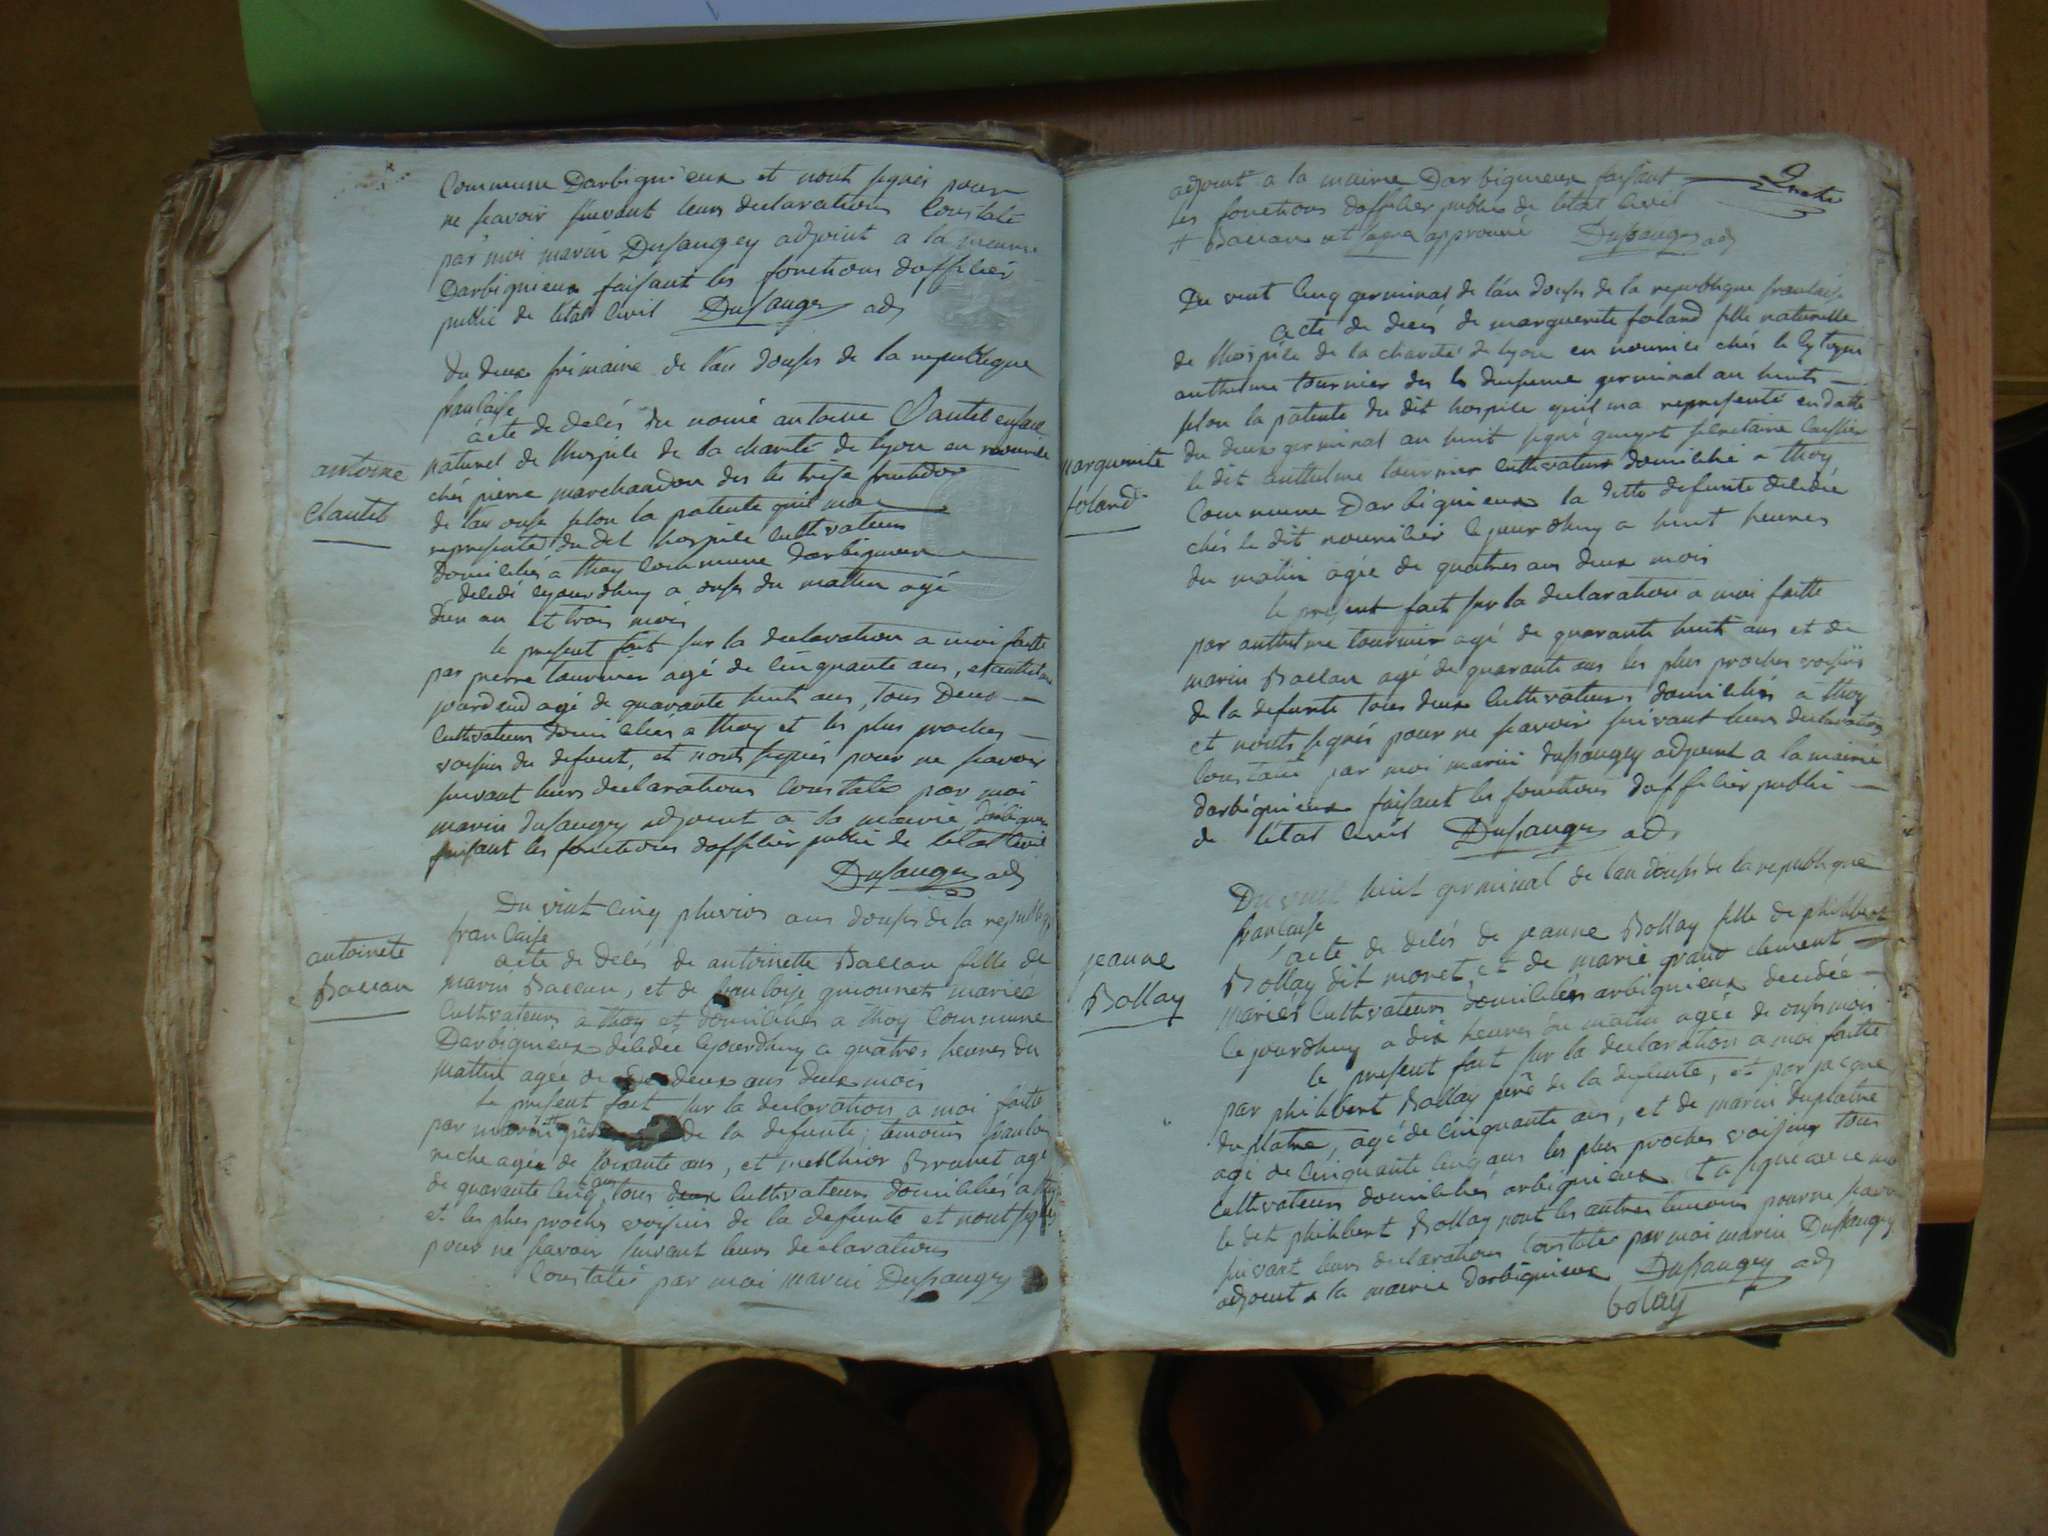 Commune Darbignieux et nont signés pour
ne savoir suivant leurs declarations Constaté
par moi marin Dusaugey adjoint a la mairie
Darbignieux faisant les fonctions dofficier
public de létat Civil Dusaugey adj
du deux frimaire de l'an douse de la republique
francaise
acte de decés du nomé antoine Clautel enfant
naturel de lhospile de la charité de lyon en nourrice
chés pierre marchandon des les treise fructidor
de l'an onse selon la patente quil ma
representé du dit hospile Cultivateur
domiciliés a thoy Commune darbignieux
decedé cejourdhuy a onse du mattin agé
d'un an et trois mois
le present fait sur la declaration a moi faitte
par pierre tournier agé de Cinquante ans, et anthelme
agé de quarante huit ans, tous Deux
Cultivateurs domiciliés a thoy et les plus proches
voisins du defunt, et nont signés pour ne savoir
suivant leurs declarations Constatés par moi
marin dusaugey adjoint a la mairie
faisant les fonctions dofficier public de létat Civil
Dusaugey adj
antoine
Clautel
Du vint Cinq pluvios ans douse de la republique
francaise
acte de decés de antoinette Ballan fille de
marin Ballan, et de francoise mariés
Cultivateurs a thoy et domiciliés a thoy Commune
Darbignieux décédée cejourdhuy a quatres heures du
mattin agée de deux ans deux mois
le present fait sur la declaration a moi faitte
par marin père de la defunte; temoins
agée de soixante ans, et melchior Brunet agé
de quarante Cinq ans tous deux Cultivateurs domiciliés a thoy
et les plus proches voisins de la defunte et nont signés
pour ne savoir suivant leurs declarations
Constatés par moi marin Dusaugey
antoinete
Ballan
adjoint a la mairie Darbignieux faisant
les fonctions dofficier public de létat Civil
+ Ballan approuvé Dusaugey adj
Du vint Cinq germinal de l'an douse de la republique francaise
acte de decés de marguerite foland fille naturelle
de lhospile de la charité de lyon en nourrice chés le Cytoyen
anthelme tournier des le deusieme germinal an huit
selon la patente du dit hospile quil ma representé en datte
du deux germinal an huit signé secretaire
le dit anthelme tournier Cultivateur domicilié a thoy
Commune Darbignieux la ditte defunte decedée
chés le dit nourricier cejourdhuy a huit heures
du matin agée de quatres ans deux mois
le present fait sur la declaration a moi faitte
par anthelme tournier agé de quarante huit ans et de
marin Ballan agé de quarante ans les plus proches voisins
de la defunte tous deux Cultivateurs domiciliés a thoy
et nonts signés pour ne savoir suivant leurs declarations
Constaté par moi marin dusaugey adjoint a la mairie
darbignieux faisant les fonctions dofficier public
de létat Civil Dusaugey adj
marguerite
foland
Du vint huit germinal de lan douse de la republique
francaise
acte de decés de jeanne Bollay fille de philibert
Bollay dit moret, et de marie grand clement
mariés Cultivateurs domiciliés arbignieux decedée
cejourdhuy a dix heures du matin agée de onse mois
le present fait sur la declaration a moi faitte
par philibert Bollay père de la defunte, et par jacque
du platre, agé de Cinquante ans, et de marin duplatre
agé de Cinquante Cinq ans les plus proches voisins tous
Cultivateurs domiciliés arbignieux et a signé avec moi
le dit philibert Bollay nont les autres temoins pour ne savoir
suivant leurs declarations Constatés par moi marin Dusaugey
adjoint a la mairie darbignieux Dusaugey adj
bolay
jeanne
Bollay